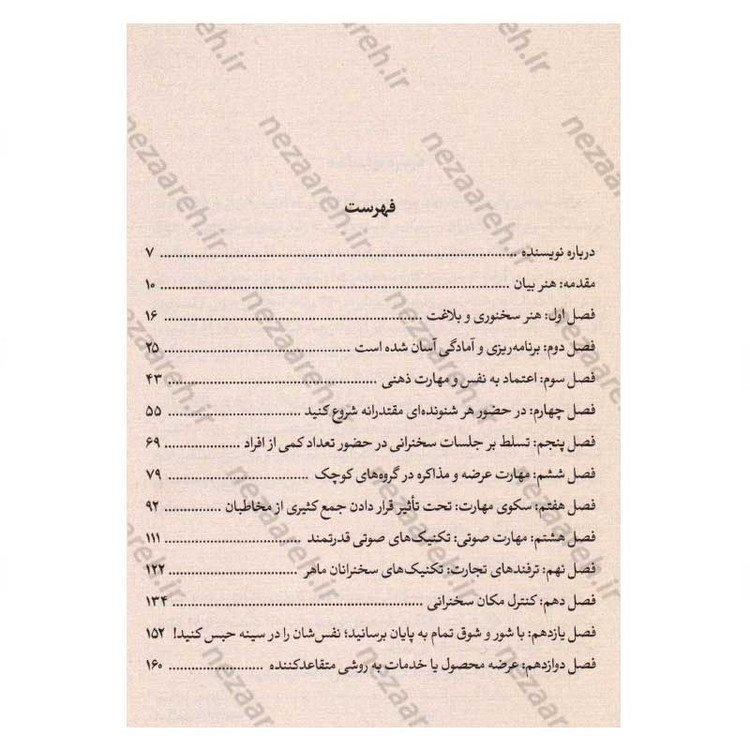 فهرست
درباره نویسنده ..... ۷
مقدمه: هنر بیان ..... ۱۰
فصل اول: هنر سخنوری و بلاغت ..... ۱۶
فصل دوم: برنامه‌ریزی و آمادگی آسان شده است ..... ۲۵
فصل سوم: اعتماد به نفس و مهارت ذهنی ..... ۴۳
فصل چهارم: در حضور هر شنونده‌ای مقتدرانه شروع کنید ..... ۵۵
فصل پنجم: تسلط بر جلسات سخنرانی در حضور تعداد کمی از افراد ..... ۶۹
فصل ششم: مهارت عرضه و مذاکره در گروه‌های کوچک ..... ۷۹
فصل هفتم: سکوی مهارت: تحت تأثیر قرار دادن جمع کثیری از مخاطبان ..... ۹۲
فصل هشتم: مهارت صوتی: تکنیک‌های صوتی قدرتمند ..... ۱۱۱
فصل نهم: ترفندهای تجارت: تکنیک‌های سخنرانان ماهر ..... ۱۲۲
فصل دهم: کنترل مکان سخنرانی ..... ۱۳۴
فصل یازدهم: با شور و شوق تمام به پایان برسانید؛ نفس‌شان را در سینه حبس کنید! ۱۵۲
فصل دوازدهم: عرضه محصول یا خدمات به روشی متقاعدکننده ..... ۱۶۰
nezaareh.ir